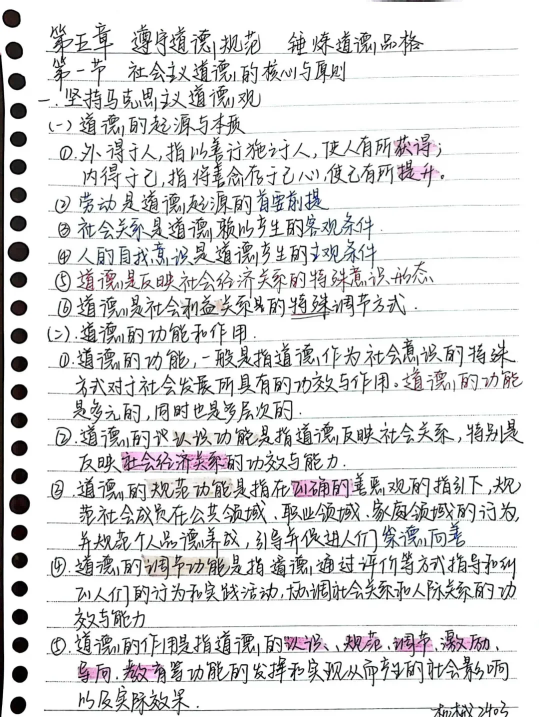 第五章 遵守道德规范 锤炼道德品格
第一节 社会主义道德的核心与原则
一.坚持马克思主义道德观
(一)道德的起源与本质
①.外得于人,指以善行施于人,使人有所获得;
内得于己,指将善念存于己心,使己有所提升。
②劳动是道德起源的首要前提
③社会关系是道德赖以产生的客观条件.
④人的自我意识是道德产生的主观条件.
⑤道德是反映社会经济关系的特殊意识形态
⑥道德是社会利益关系的特殊调节方式.
(二).道德的功能和作用.
①.道德的功能,一般是指道德作为社会意识的特殊
方式对于社会发展所具有的功效与作用。道德的功能
是多元的,同时也是多层次的.
②.道德的认识功能是指道德反映社会关系,特别是
反映社会经济关系的功效与能力.
③道德的规范功能是指在正确的善恶观的指引下,规
范社会成员在公共领域、职业领域、家庭领域的行为,
并规范个人品德养成,引导并促进人们崇德向善
④.道德的调节功能是指道德通过评价等方式指导和纠
正人们的行为和实践活动,协调社会关系和人际关系的功
效与能力
⑤.道德的作用是指道德的认识、规范、调节、激励、
导向、教育等功能的发挥和实现从而产生的社会影响
以及实际效果.
机械2403